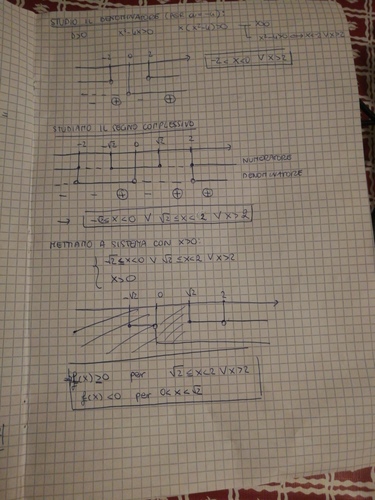 STUDIO IL DENOMINATORE
D>0 x³-4x>0 x(x²-4)>0 x>0
x²-4>0 x<-2 V x>2
-2 0 2
-2<x<0 V x>2
- - ⊕ - ⊕
STUDIAMO IL SEGNO COMPLESSIVO
-2 -√2 0 √2 2
NUMERATORE
DENOMINATORE
- - ⊕ - ⊕ - ⊕
→ ≤x<0 V √2≤x<2 V x>2
METTIAMO A SISTEMA CON x>0:
-√2≤x<0 V √2≤x<2 V x>2
x>0
-√2 0 √2 2
f(x)≥0 per √2≤x<2 V x>2
f(x)<0 per 0<x<√2